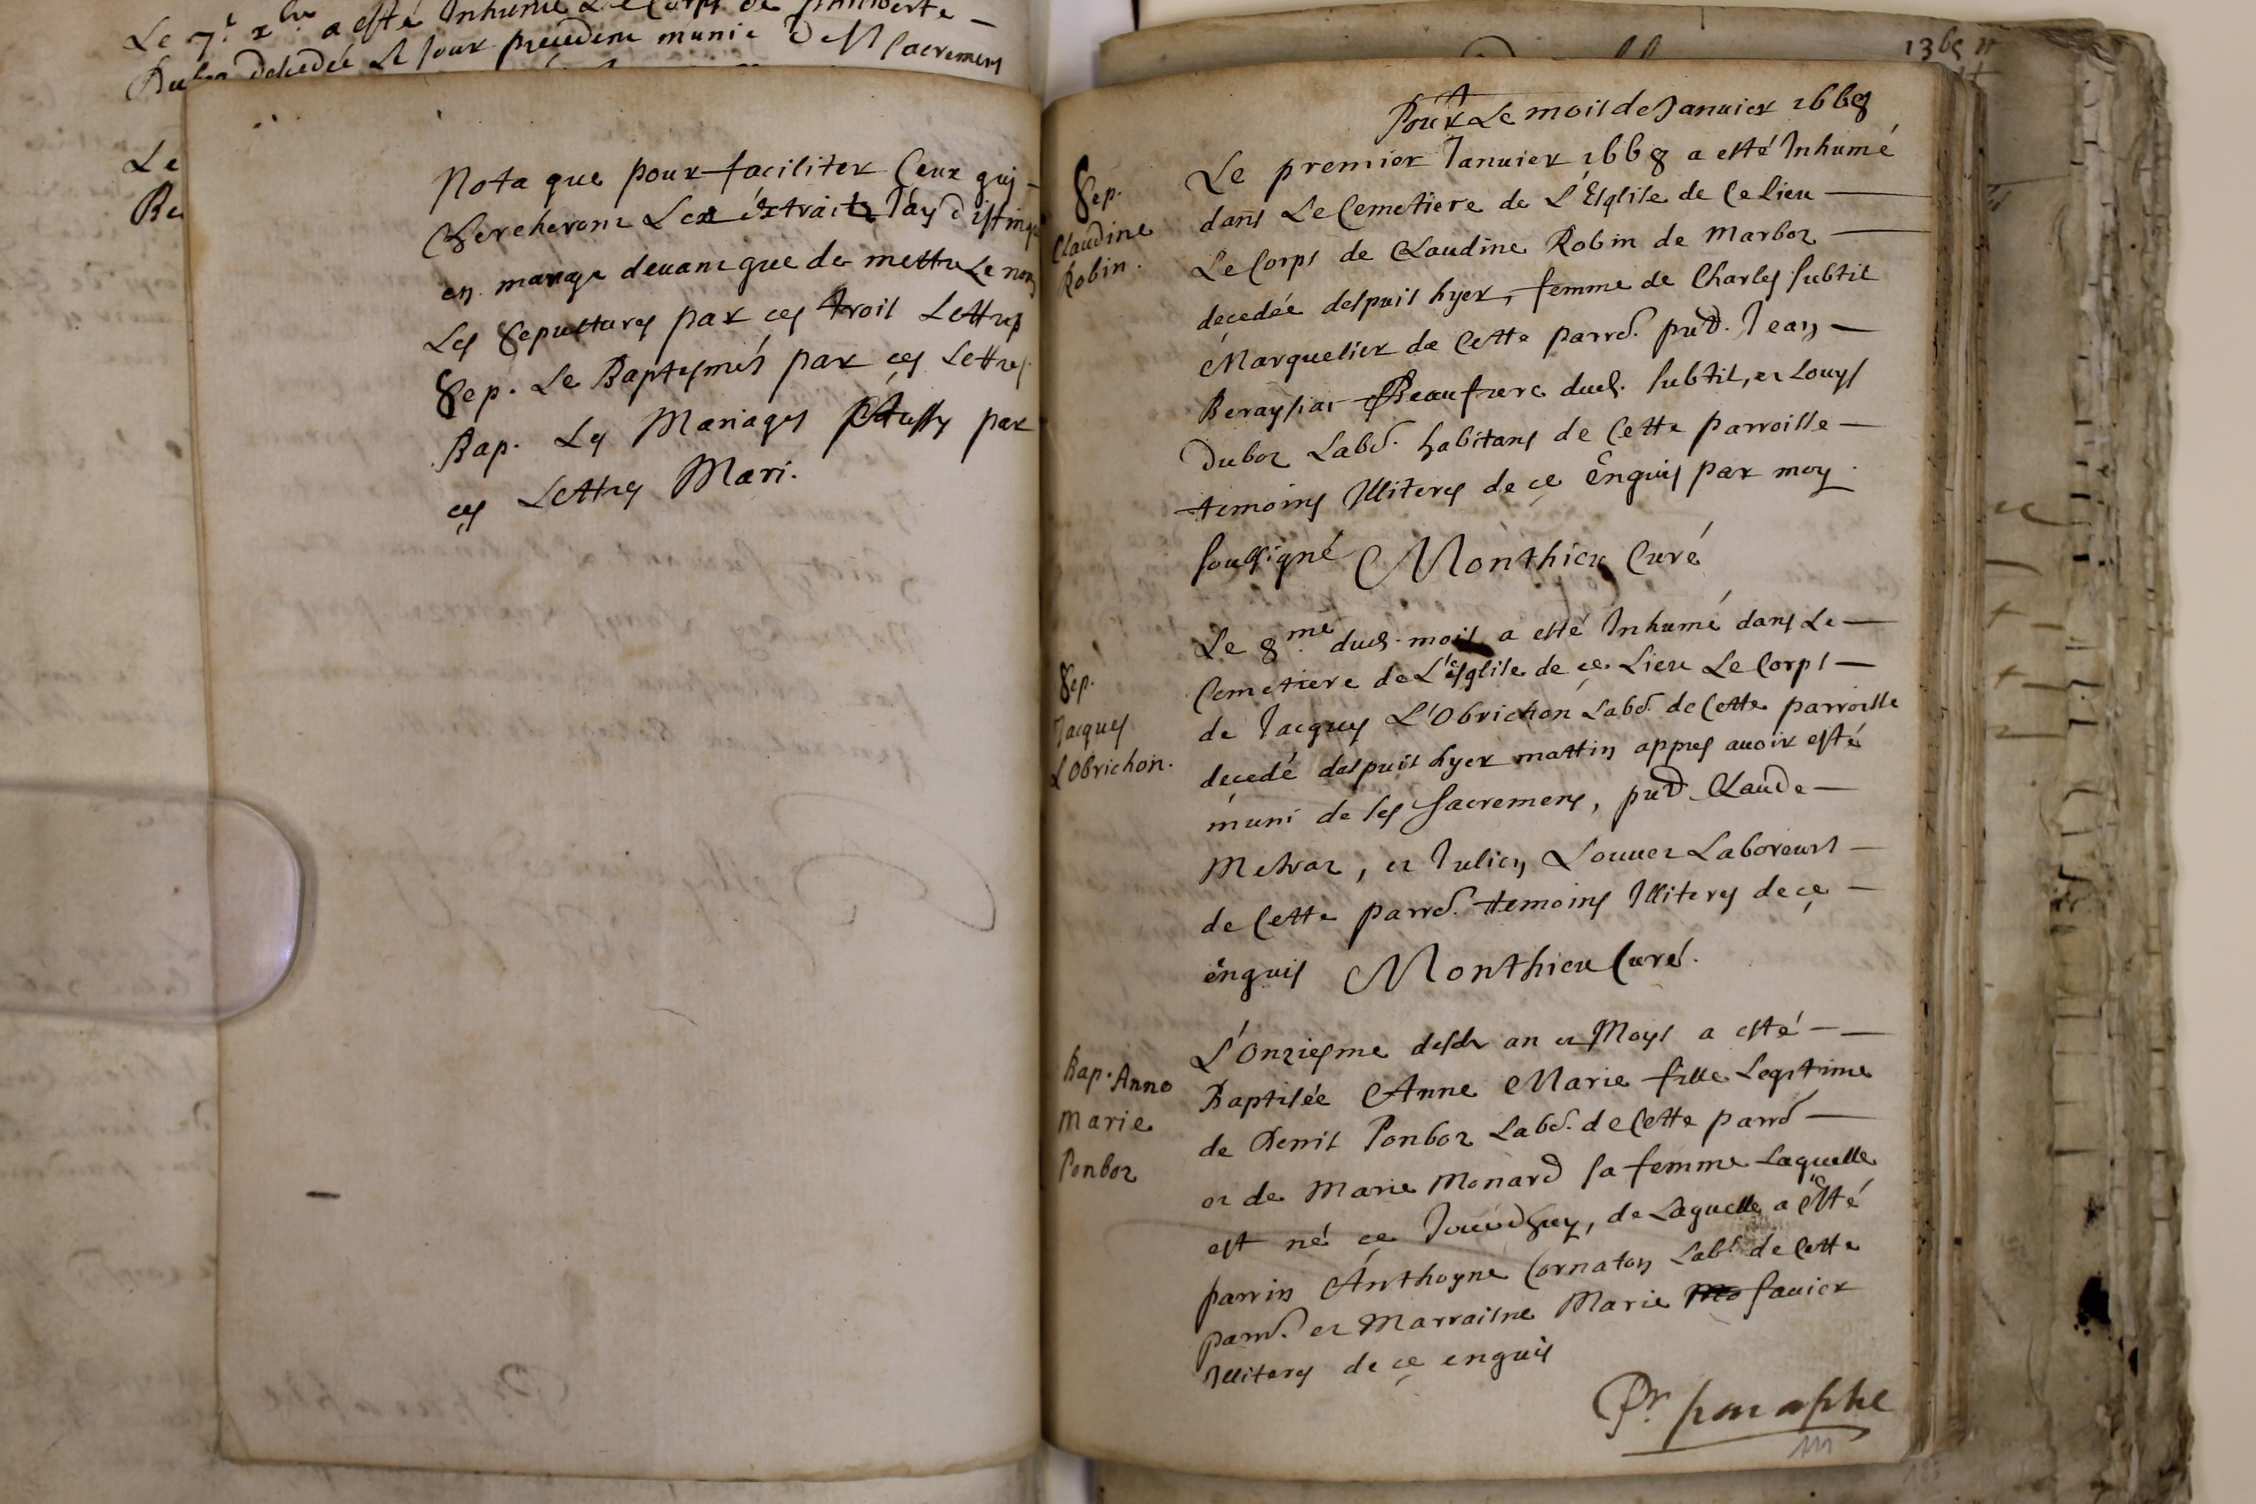 Le 7.e xbre a esté Inhumé Le Corps de
decedée Le Jour precedent munie des Sacremens
Le
Nota que pour faciliter Ceux qui
Chercheront Les extraits J'ay distingué
en marage devant que de mettre Le nom
Les Sepultures par ces trois Lettres
Sep. Le Baptesmes par ces Lettres
Bap. Les Mariages Aussy par
ces Lettres Mari.
1368
Pour Le mois de Janvier 1668
Sep.
Claudine
Robin.
Le premier Janvier 1668 a esté Inhumé
dans Le Cemetiere de L'Esglise de Ce lieu
Le Corps de Claudine Robin de Marboz
decedée despuis hyer, femme de Charles Subtil
Marguelier de Cette parrē. pnt. Jean
Beraysiat Beaufrere dud. Subtil, et Louys
Duboz Labr. habitans de Cette parroisse
temoins Illiteres de ce Enquis par moy
soussigné Monthieu Curé
Sep.
Jacques
L'Obrichon.
Le 8.me dud. mois a esté Inhumé dans Le
Cemetiere de L'esglise de ce Lieu Le Corps
de Jacques L'Obrichon Labr. de Cette parroisse
decedé despuis hyer mattin appres avoir esté
muni de ses Sacremens, pnt Claude
Metraz, et Julien Louvet Laboreurs
de Cette parrē. temoins Illiteres de ce
enquis Monthieu Curé.
Bap. Anne
Marie
Ponboz
L'Onziesme desd. an et Moys a esté
Baptisée Anne Marie fille Legitime
de Denis Ponboz Labr. de Cette parrē
et de Marie Monard sa femme Laquelle
est né ce Jourdhuy, de Laquelle a Esté
parrin Anthoyne Cornaton Labr. de Cette
parrē. et Marraisne Marie Favier
Illiteres de ce enquis
Pr. paraphe